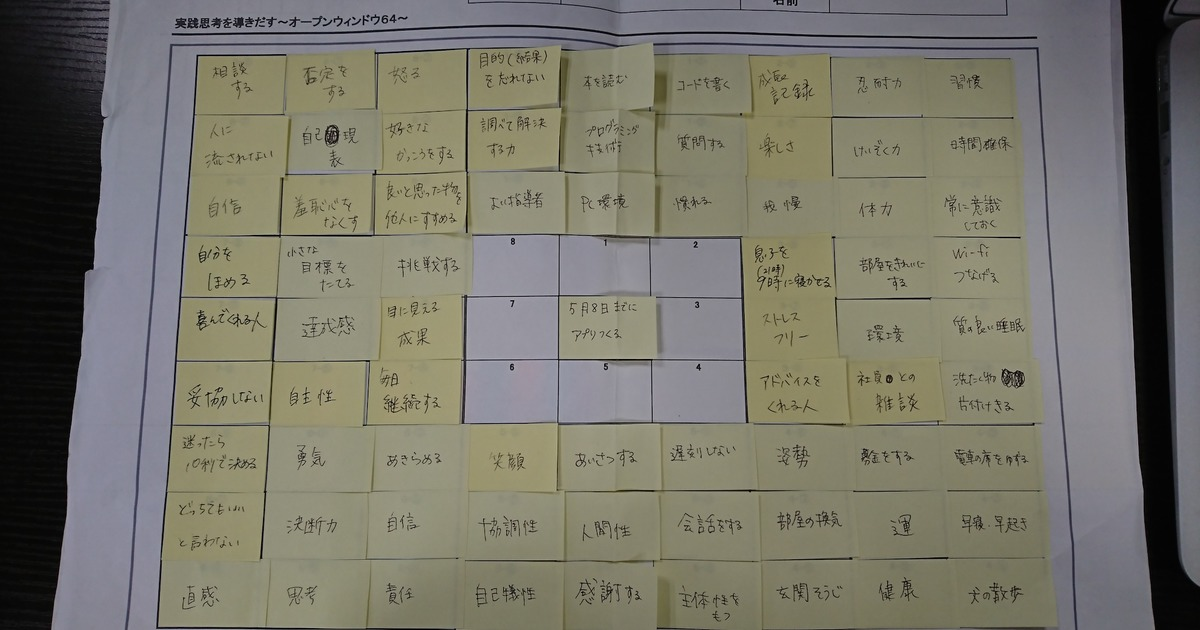 名前
実践思考を導きだす～オープンウィンドウ64～
相談
する
否定を
する
怒る
目的(結果)
をたれない
本を読む
コードを書く
成長
記録
忍耐力
習慣
人に
流されない
自己 現
表
好きな
かっこうをする
調べて解決
する力
プログラミング
技術
質問する
楽しさ
けいぞく力
時間確保
自信
羞恥心を
なくす
良いと思った物を
他人にすすめる
よい指導者
PC環境
慣れる
我慢
体力
常に意識
しておく
自分を
ほめる
小さな
目標を
たてる
挑戦する
8
1
2
息子を
(21時)
9時に寝かせる
部屋をきれいに
する
Wi-fi
つなげる
喜んでくれる人
達成感
目に見える
成果
7
5月8日までに
アプリつくる
3
ストレス
フリー
環境
質の良い睡眠
妥協しない
自主性
毎日
継続する
6
5
4
アドバイスを
くれる人
社員 との
雑談
洗たく物
片付けきる
迷ったら
10秒で決める
勇気
あきらめる
笑顔
あいさつする
遅刻しない
姿勢
募金をする
電車の席をゆずる
どっちでもいい
と言わない
決断力
自信
協調性
人間性
会話をする
部屋の換気
運
早寝・早起き
直感
思考
責任
自己犠牲
感謝する
主体性を
もつ
玄関そうじ
健康
犬の散歩